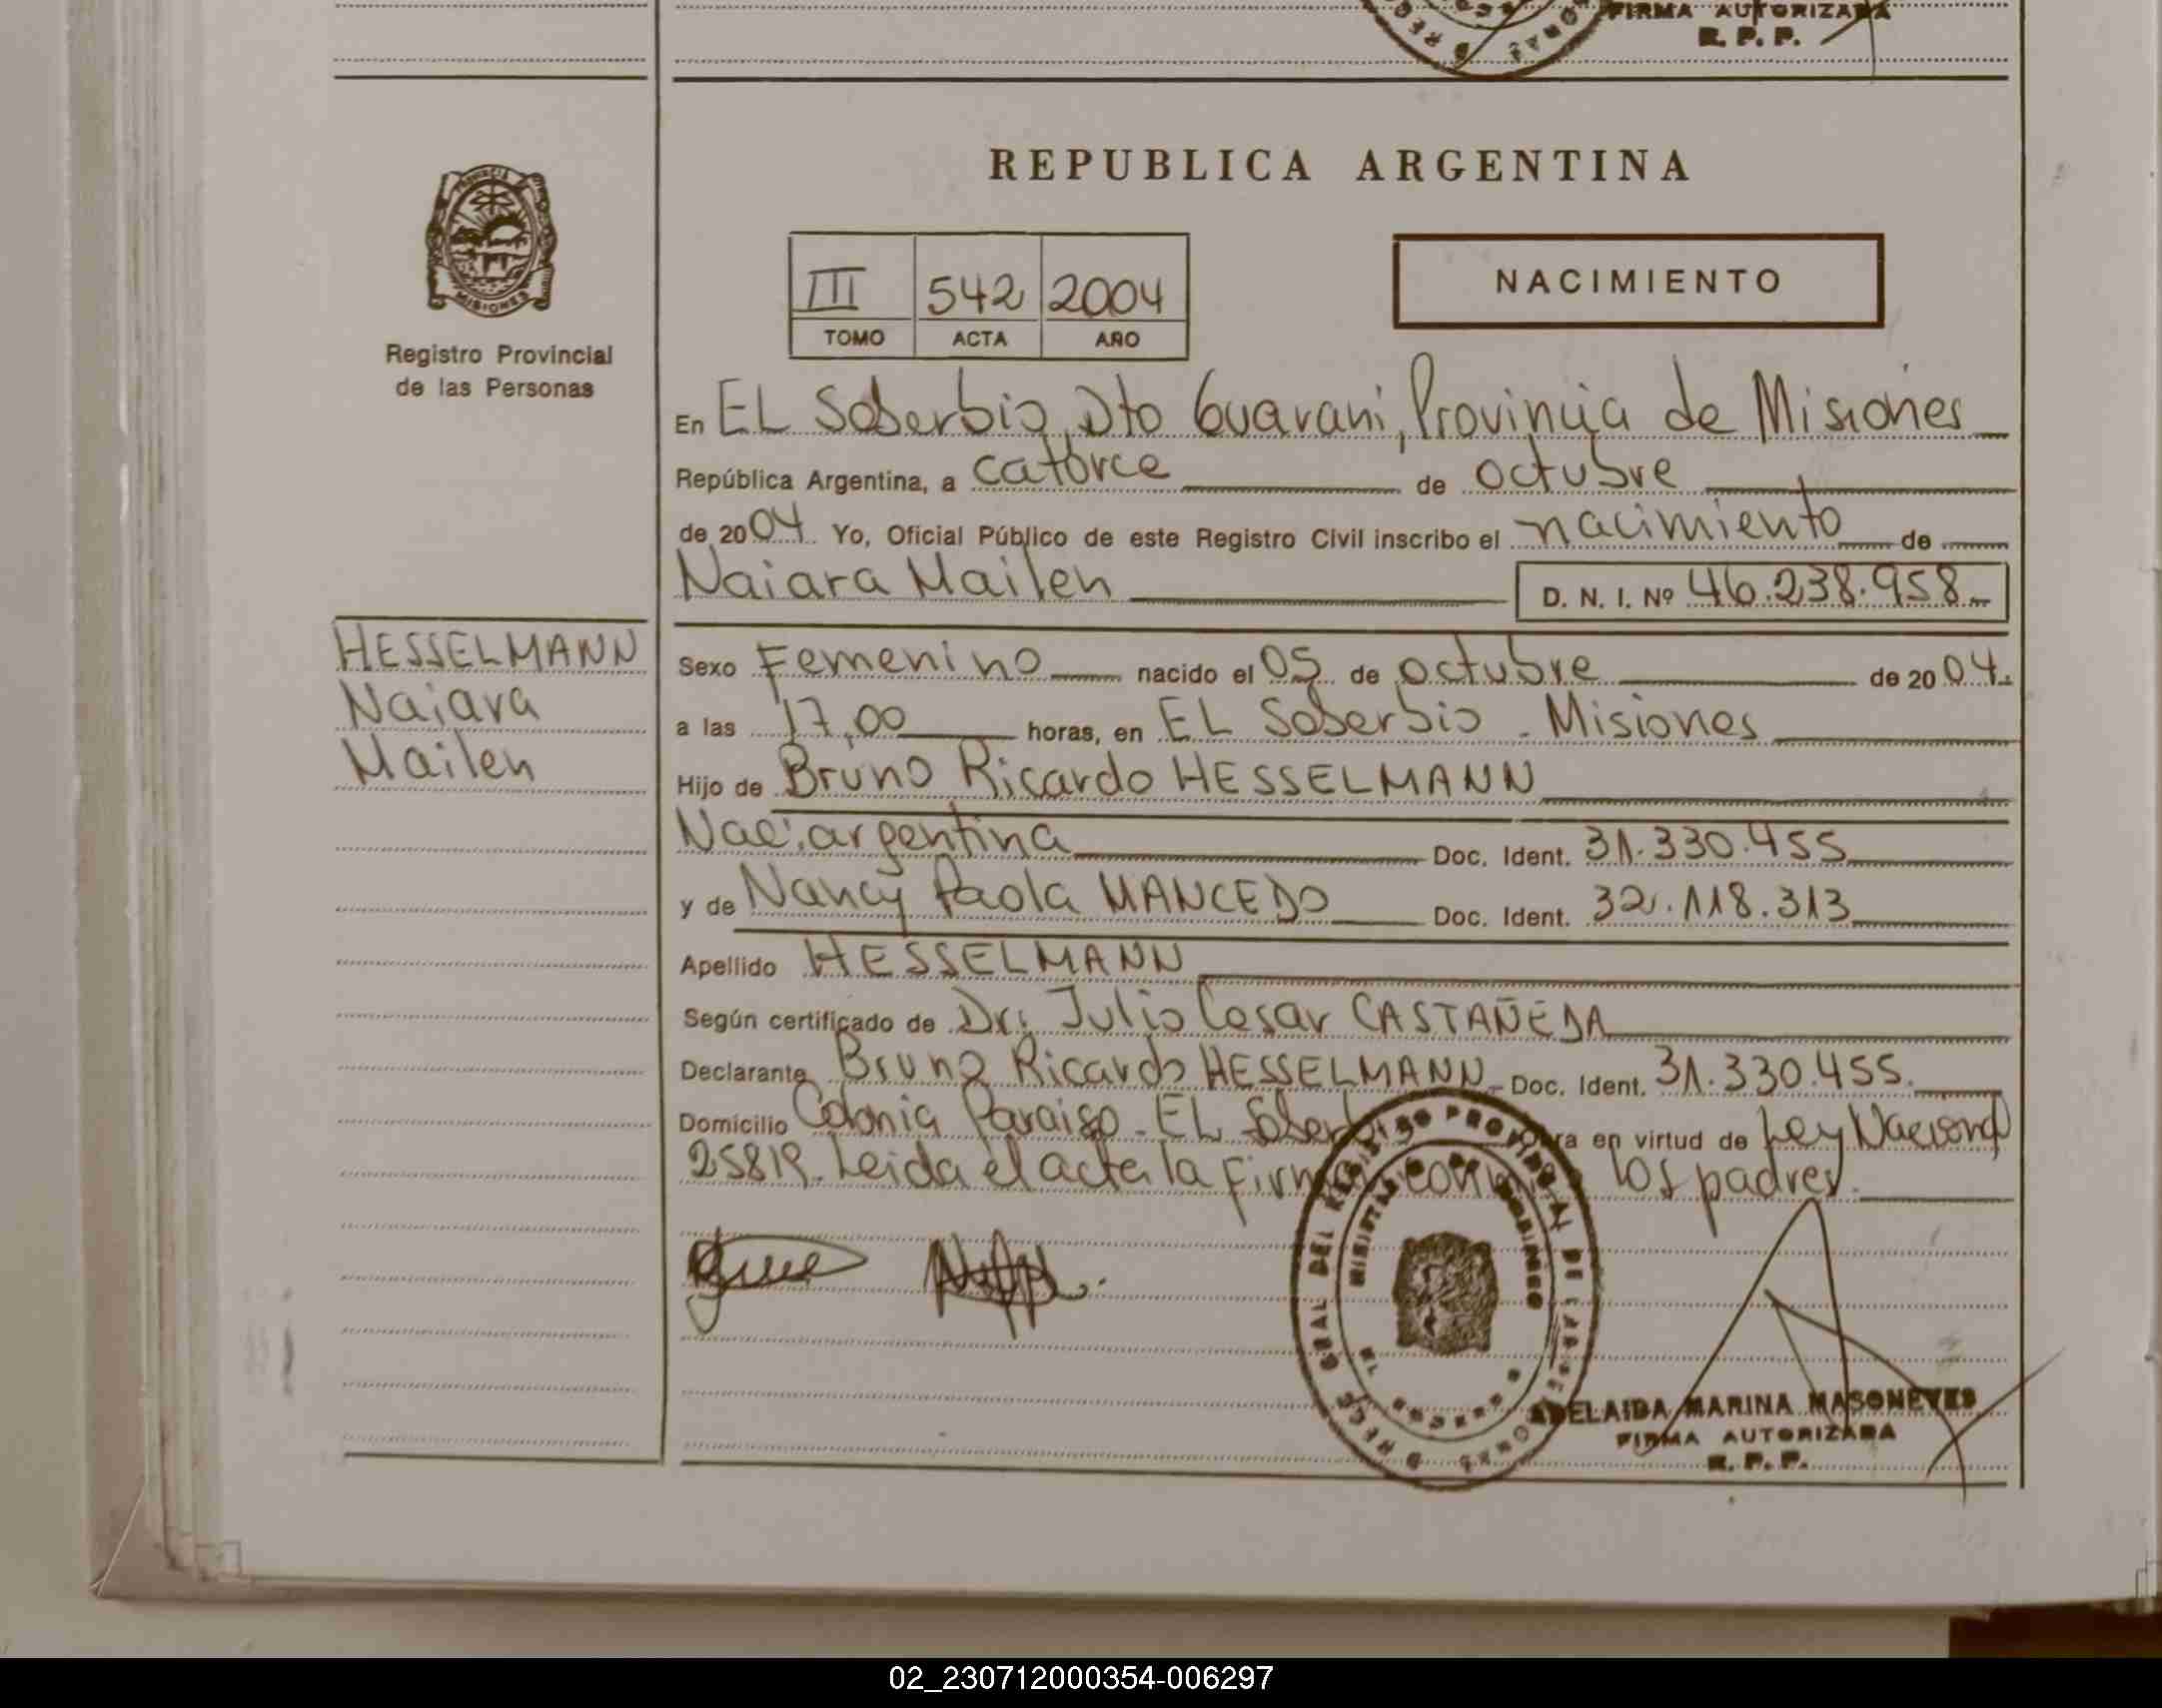 FIRMA AUTORIZADA
R. P. P.
REPUBLICA ARGENTINA
PROVINCIA DE
MISIONES
Registro Provincial
de las Personas
III 542 2004
TOMO ACTA AÑO
NACIMIENTO
En EL Soberbio, Dto Guarani, Provincia de Misiones
República Argentina, a catorce de octubre
de 2004. Yo, Oficial Público de este Registro Civil inscribo el nacimiento de
Naiara Mailen D. N. I. Nº 46.238.958.-
HESSELMANN
Naiara
Mailen
Sexo Femenino nacido el 05 de octubre de 2004.
a las 17,00 horas, en EL Soberbio - Misiones
Hijo de Bruno Ricardo HESSELMANN
Nac: argentina Doc. Ident. 31.330.455
y de Nancy Paola MANCEDO Doc. Ident. 32.118.313
Apellido HESSELMANN
Según certificado de Dr: Julio Cesar CASTAÑEDA
Declarante Bruno Ricardo HESSELMANN Doc. Ident. 31.330.455.
Domicilio Colonia Paraiso - EL Soberbio Obra en virtud de Ley Nacional
25819. Leida el acta la firman conmigo los padres.
REGISTRO PROVINCIAL DE LAS PERSONAS
ADELAIDA MARINA MASONEVES
FIRMA AUTORIZADA
R. P. P.
02_230712000354-006297